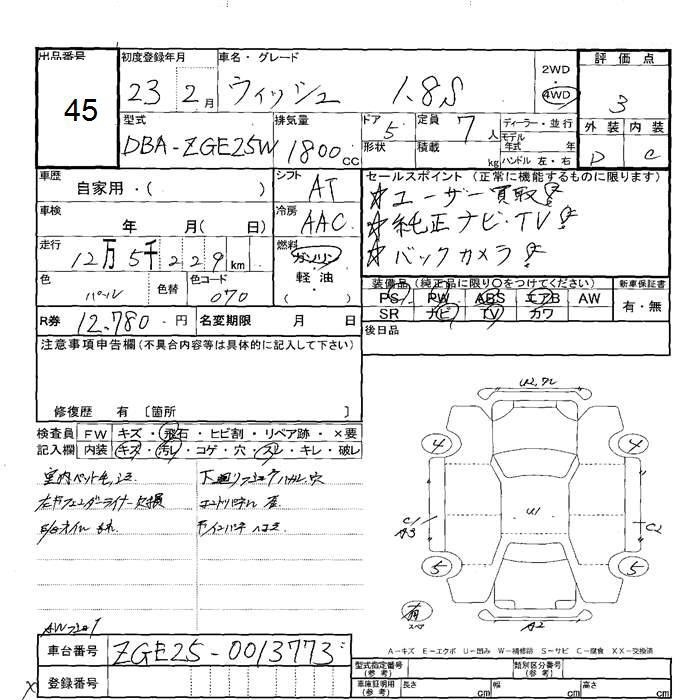 出品番号
45
初度登録年月
23 2月
車名・グレード
ウィッシュ 1.8S
2WD
4WD
評価点
3
型式
DBA-ZGE25W
排気量
1800cc
ドア
5
形状
定員
7人
積載
kg
ディーラー・並行
モデル年式 年
ハンドル 左・右
外装 内装
D C
車歴
自家用・( )
シフト
AT
車検
年 月( 日)
冷房
AAC
走行
12万5千229km
燃料
ガソリン
軽油
( )
色
パール
色替
色コード
070
セールスポイント(正常に機能するものに限ります)
☆ユーザー買取!
☆純正ナビ・TV!
☆バックカメラ!
装備品(純正品に限り○をつけてください)
PS PW ABS エアB AW
SR ナビ TV カワ
新車保証書
有・無
R券 12,780円
名変期限 月 日
後日品
注意事項申告欄(不具合内容等は具体的に記入して下さい)
修復歴 有 [箇所 ]
検査員記入欄
FW キズ・飛石・ヒビ割・リペア跡・×要
内装 キズ・汚レ・コゲ・穴・スレ・キレ・破レ
室内ペット毛
下廻り
エンドパネル
E/Gオイル
4 4
5 5
U1
A3
C2
A2
有
スペア
A-キズ E-エクボ U-凹み W-補修跡 S-サビ C-腐食 XX-交換済
車台番号
ZGE25-0013773
登録番号
型式指定番号(参考)
類別区分番号(参考)
車庫証明用(参考)
長さ cm 幅 cm 高さ cm